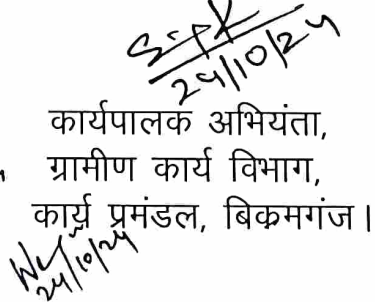 24/10/24
कार्यपालक अभियंता,
ग्रामीण कार्य विभाग,
कार्य प्रमंडल, बिक्रमगंज।
24/10/24